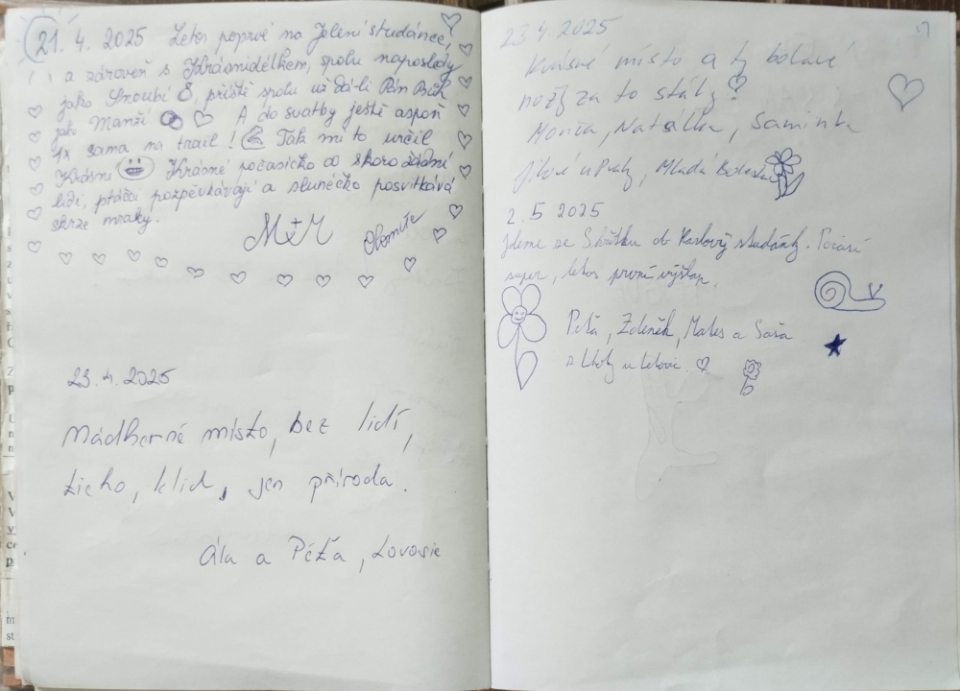 21. 4. 2025 Letos poprvé na Jelení studánce,
a zároveň s Krásnidélkem, spolu naposledy
jako Snoubi, příště spolu už dá-li Pán Bůh
jako Manžé A do svatby ještě aspoň
1x sama na trail! Tak mi to určil
Krásni Krásné počasíčko a skoro žádní
lidi, ptáčci pozpěvkávají a slunéčko posvitkává
skrze mraky.
M+M Olomouc
23.4.2025
Nádherné místo, bez lidí,
ticho, klid, jen příroda.
Ála a Péťa, Lovosice
23.4.2025
Krásné místo a ty bolavé
nožky za to stály
Monča, Natálka, Saminka
Jílové u Prahy, Mladá Boleslav
2.5 2025
Jdeme ze Skřítku do Karlovy studánky. Počasí
super, letos první výšlap.
Peťa, Zdeněk, Mates a Saša
z Lhoty u Letovic.